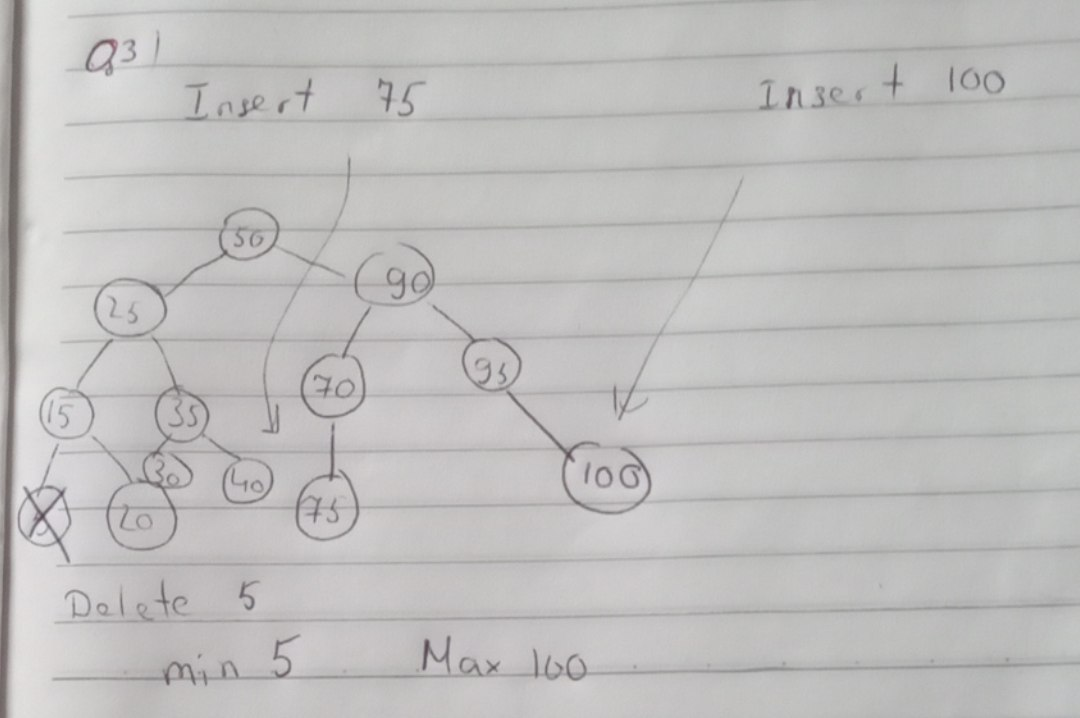 Q3)
Insert 75 Insert 100
50
90
25
70 95
15 35
30 40 100
20 75
Delete 5
min 5 Max 100